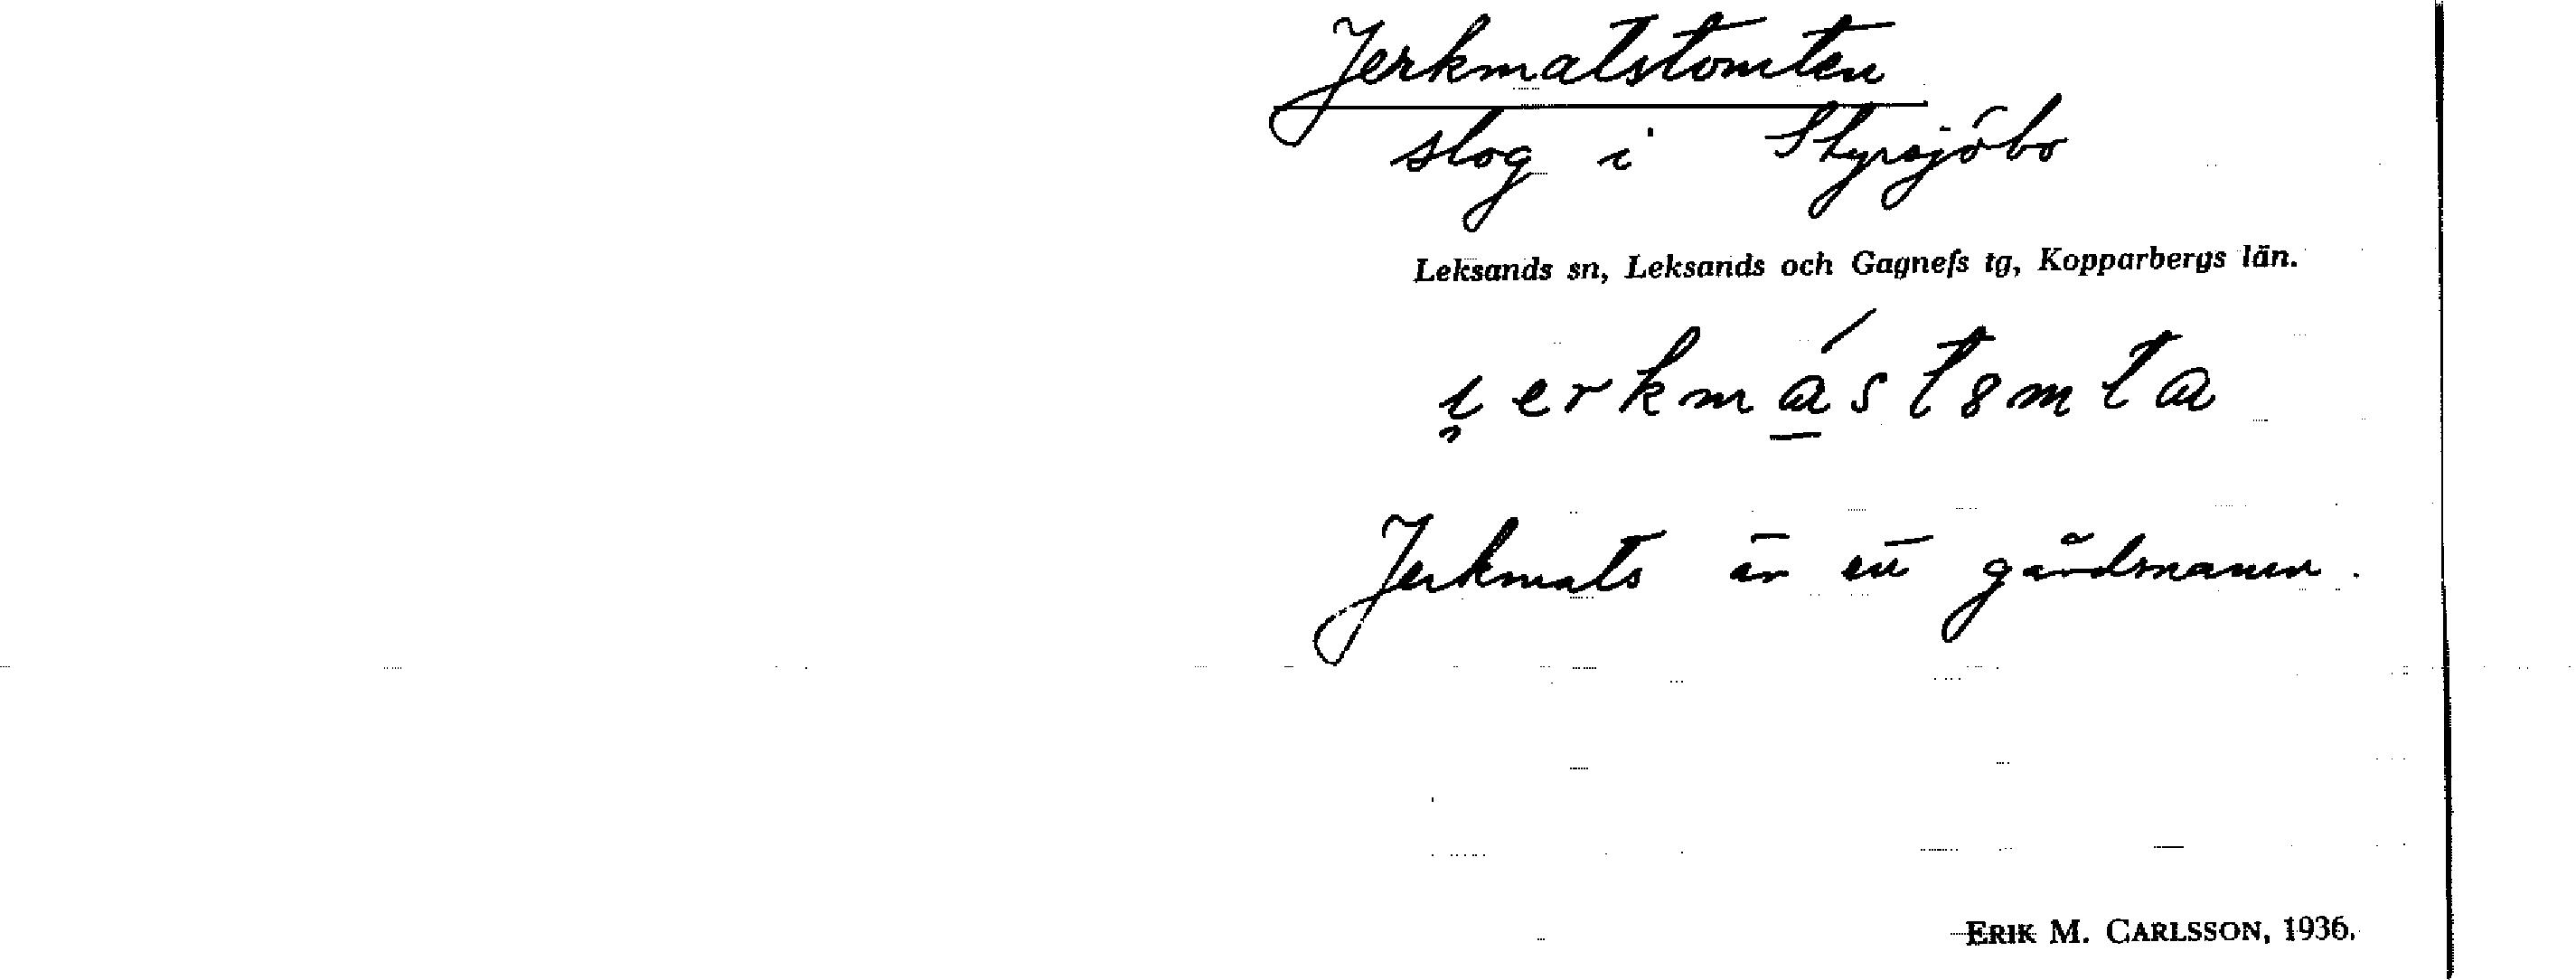 Jerkmatstomten
slog i Styrsjöbo
Leksands sn, Leksands och Gagnefs tg, Kopparbergs län.
Jerkmats är ett gårdsnamn.
ERIK M. CARLSSON, 1936.